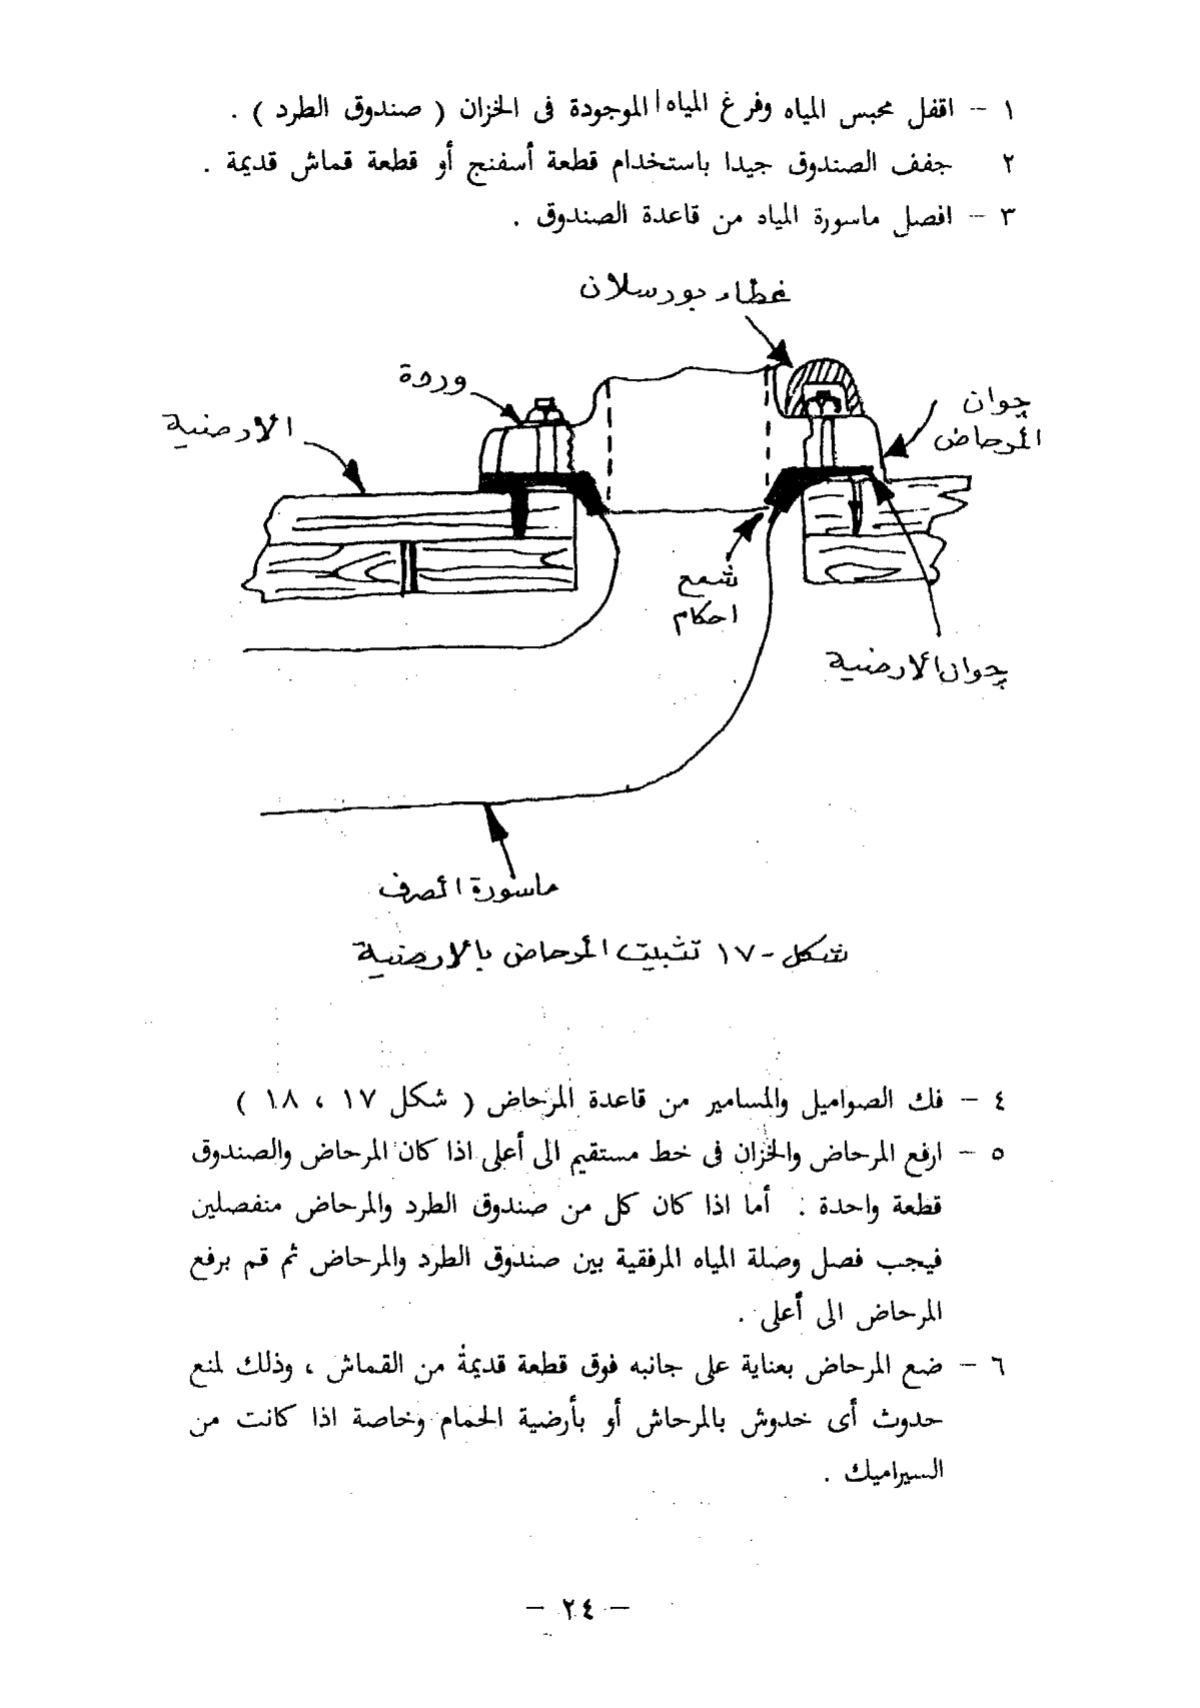 ١ – اقفل محبس المياه وفرغ المياه الموجودة فى الخزان ( صندوق الطرد ) .
٢ جفف الصندوق جيدا باستخدام قطعة أسفنج أو قطعة قماش قديمة .
٣ – افصل ماسورة المياه من قاعدة الصندوق .
غطاء بورسلان
وردة
جوان
المرحاض
الارضية
شمع
احكام
جوان الارضية
ماسورة الصرف
شكل - ١٧ تثبيت المرحاض بالارضية
٤ – فك الصواميل والمسامير من قاعدة المرحاض ( شكل ١٧ ، ١٨ )
٥ – ارفع المرحاض والخزان فى خط مستقيم الى أعلى اذا كان المرحاض والصندوق
قطعة واحدة . أما اذا كان كل من صندوق الطرد والمرحاض منفصلين
فيجب فصل وصلة المياه المرفقية بين صندوق الطرد والمرحاض ثم قم برفع
المرحاض الى أعلى .
٦ – ضع المرحاض بعناية على جانبه فوق قطعة قديمة من القماش ، وذلك لمنع
حدوث أى خدوش بالمرحاش أو بأرضية الحمام وخاصة اذا كانت من
السيراميك .
– ٢٤ –